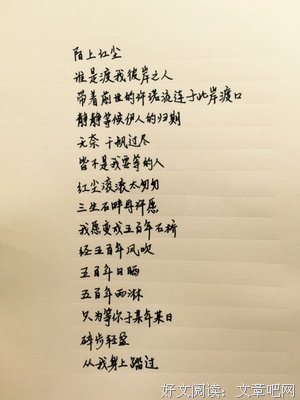 陌上红尘
谁是渡我彼岸之人
带着前世的许诺流连于此岸渡口
静静等候伊人的归期
无奈 千帆过尽
皆不是我要等的人
红尘滚滚太匆匆
三生石畔再许愿
我愿变成五百年石桥
经五百年风吹
五百年日晒
五百年雨淋
只为等你于某年某日
碎步轻盈
从我身上踏过
好文阅读：文章吧网